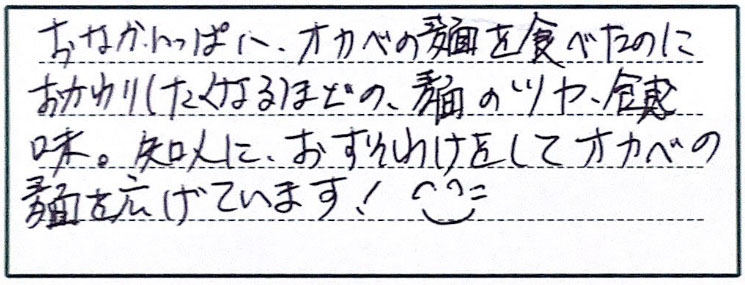 おなかいっぱい、オカベの麺を食べたのに
おかわりしたくなるほどの、麺のツヤ、食感
味。知人に、おすそわけをしてオカベの
麺を広げています!